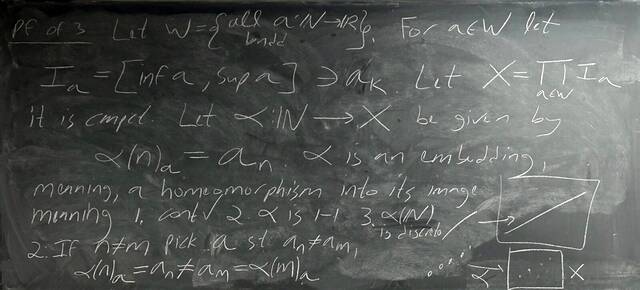 Pf of 3 Let W = {all bndd a: ℕ → ℝ}. For a∈W let
I_a = [inf a, sup a] ∋ a_k. Let X = ∏_{a∈W} I_a
it is cmpct. Let α: ℕ → X be given by
α(n)_a = a_n. α is an embedding,
meaning, a homeomorphism into its image
meaning 1. cont √ 2. α is 1-1 3. α(ℕ) is discrete
2. If n≠m pick a st a_n≠a_m,
α(n)_a = a_n ≠ a_m = α(m)_a
α X